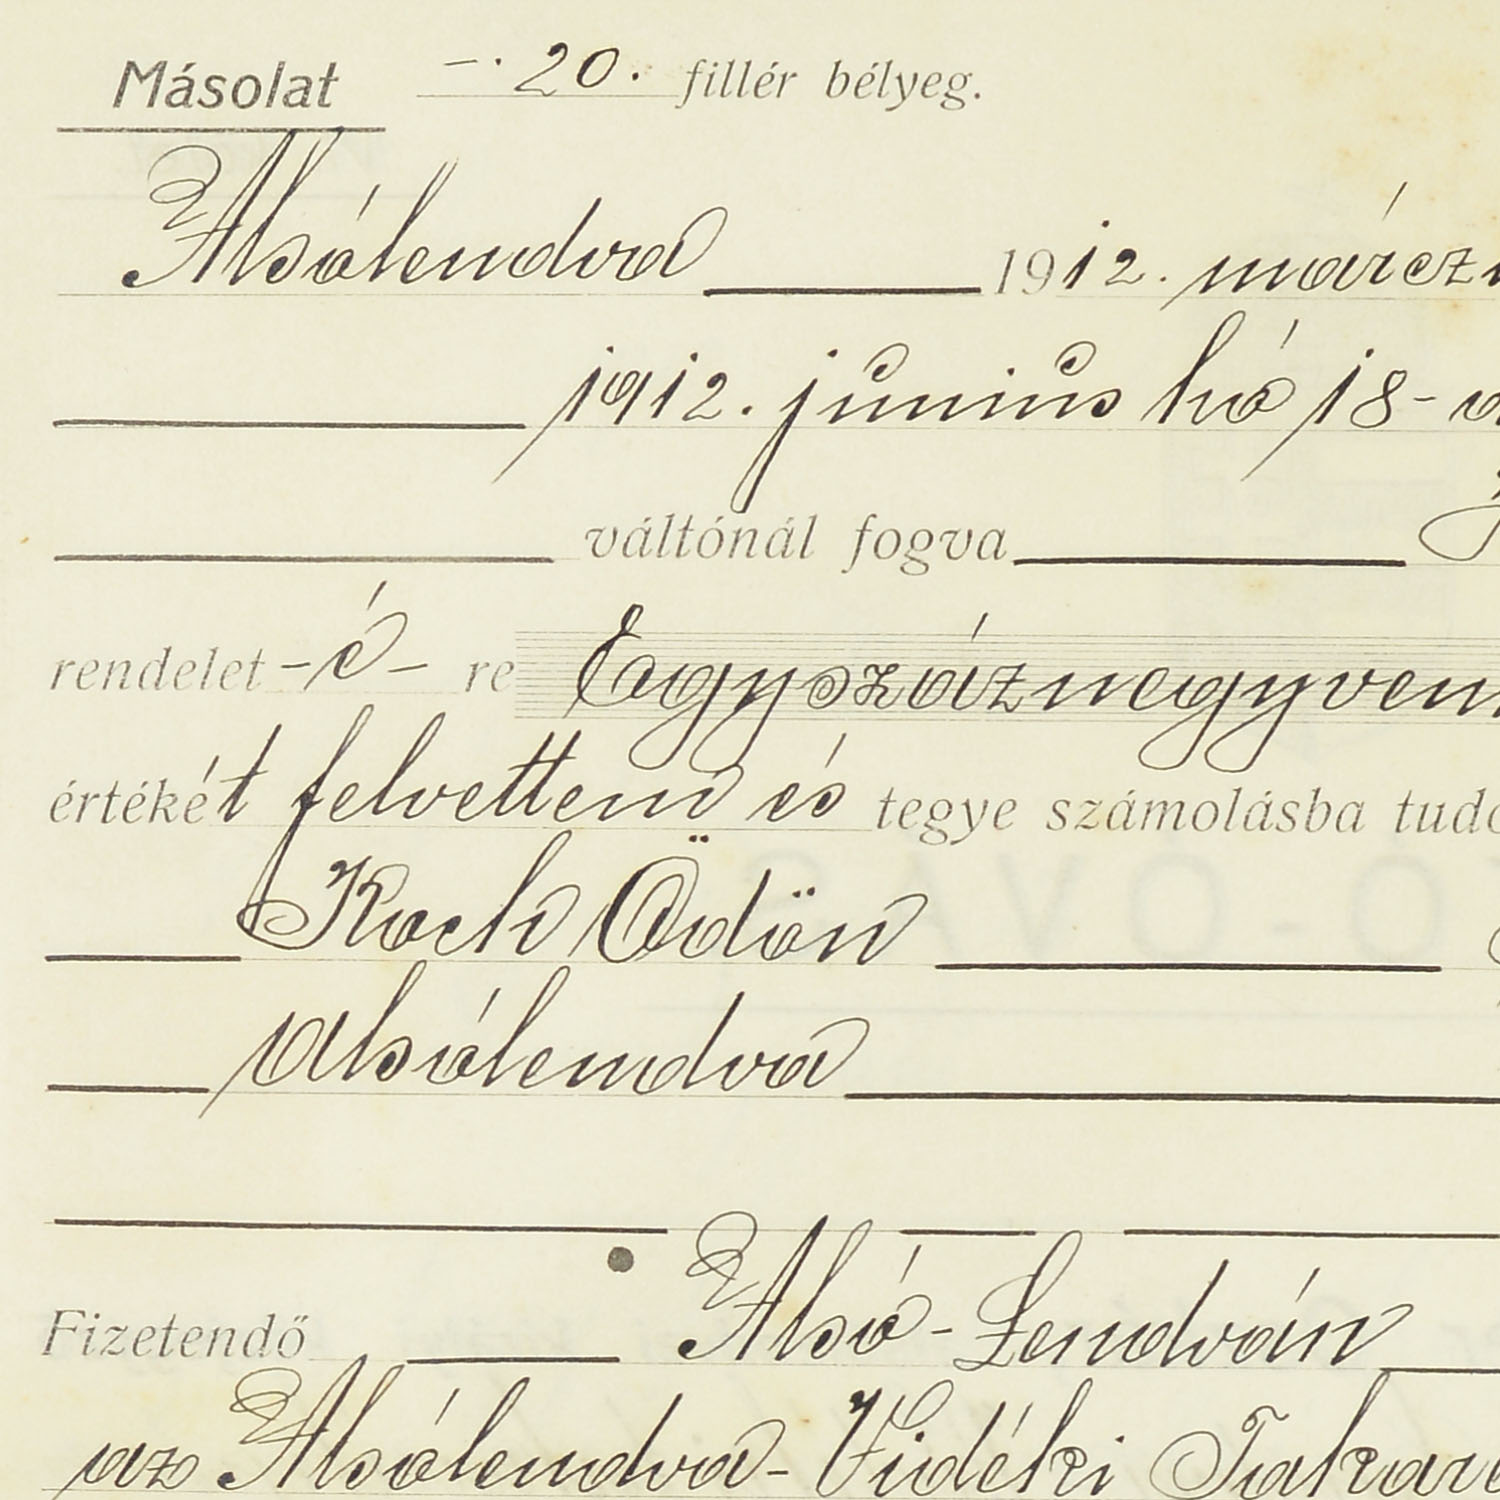 Másolat -. 20. fillér bélyeg.
Alsólendva 1912. márczi
1912. június hó 18-
váltónál fogva
rendelet -é- re Egyszáznegyven
értékét felvettem és tegye számolásba tudó
Koch Ödön
Alsólendva
Fizetendő Alsó-Lendván
az Alsólendva-Vidéki Takaré